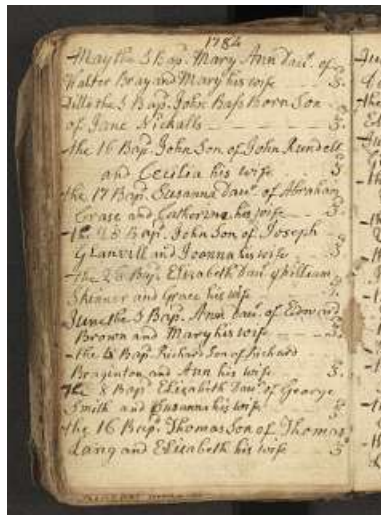 1784
May the 5 Bap. Mary Ann Daur. of
Walter Bray and Mary his wife 3.
Ditto the 5 Bap. John Base Born Son
of Jane Nickalls 3.
the 16 Bap. John Son of John Rundell
and Cecilia his wife 3.
the 17 Bap. Susanna Daur. of Abraham
Crase and Catherine his wife 3.
the 23 Bap. John Son of Joseph
Glanvill and Joanna his wife 3.
the 23 Bap. Elizabeth Daur. of William
Skinner and Grace his wife 3.
June the 5 Bap. Ann Daur. of Edward
Brown and Mary his wife 3.
the Bap. Richard Son of Richard
Braginton and Ann his wife 3.
The 8 Bap. Elizabeth Daur. of George
Smith and Susanna his wife 3.
the 16 Bap. Thomas Son of Thomas
Lang and Elizabeth his wife 3